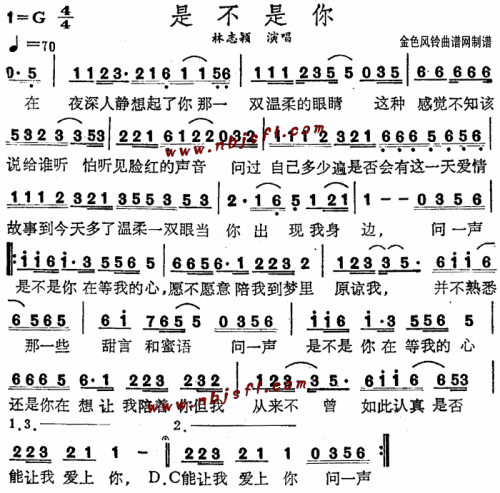 是不是你
1=G 4/4
♩=70
林志颖 演唱
金色风铃曲谱网制谱
0·5 | 1123· 216 1156 | 111235 5035 | 66666
在 夜深人静想起了你那一 双温柔的眼睛 这种 感觉不知该
说给谁听 怕听见脸红的声音 问过 自己多少遍是否会有这一天爱情
www.nbjsfl.com
1112 321 351 2223 | 2·16 5 121 | 1--0356
故事到今天多了温柔一双眼当 你出 现我身 边, 问一声
ii6i·3 5565 | 6656·1 2232 | 1223 5· 6ii6
是不是你在等我的心,愿不愿意陪我到梦里 原谅我, 并不熟悉
6565 6i 7655 0356 | iii6 i·3 5565
那一些 甜言 和蜜语 问一声 是不是 你在等我的心
6665 6·1 223 232 | 1223 3 5· 6ii6 653
还是你在 想让 我陪着 你但我 从来不 曾 如此认真 是否
www.nbjsfl.com
1.3. 2.
223 21 1 - 223 21 1 0356
能让我 爱上 你, D.C能让我 爱上 你 问一声